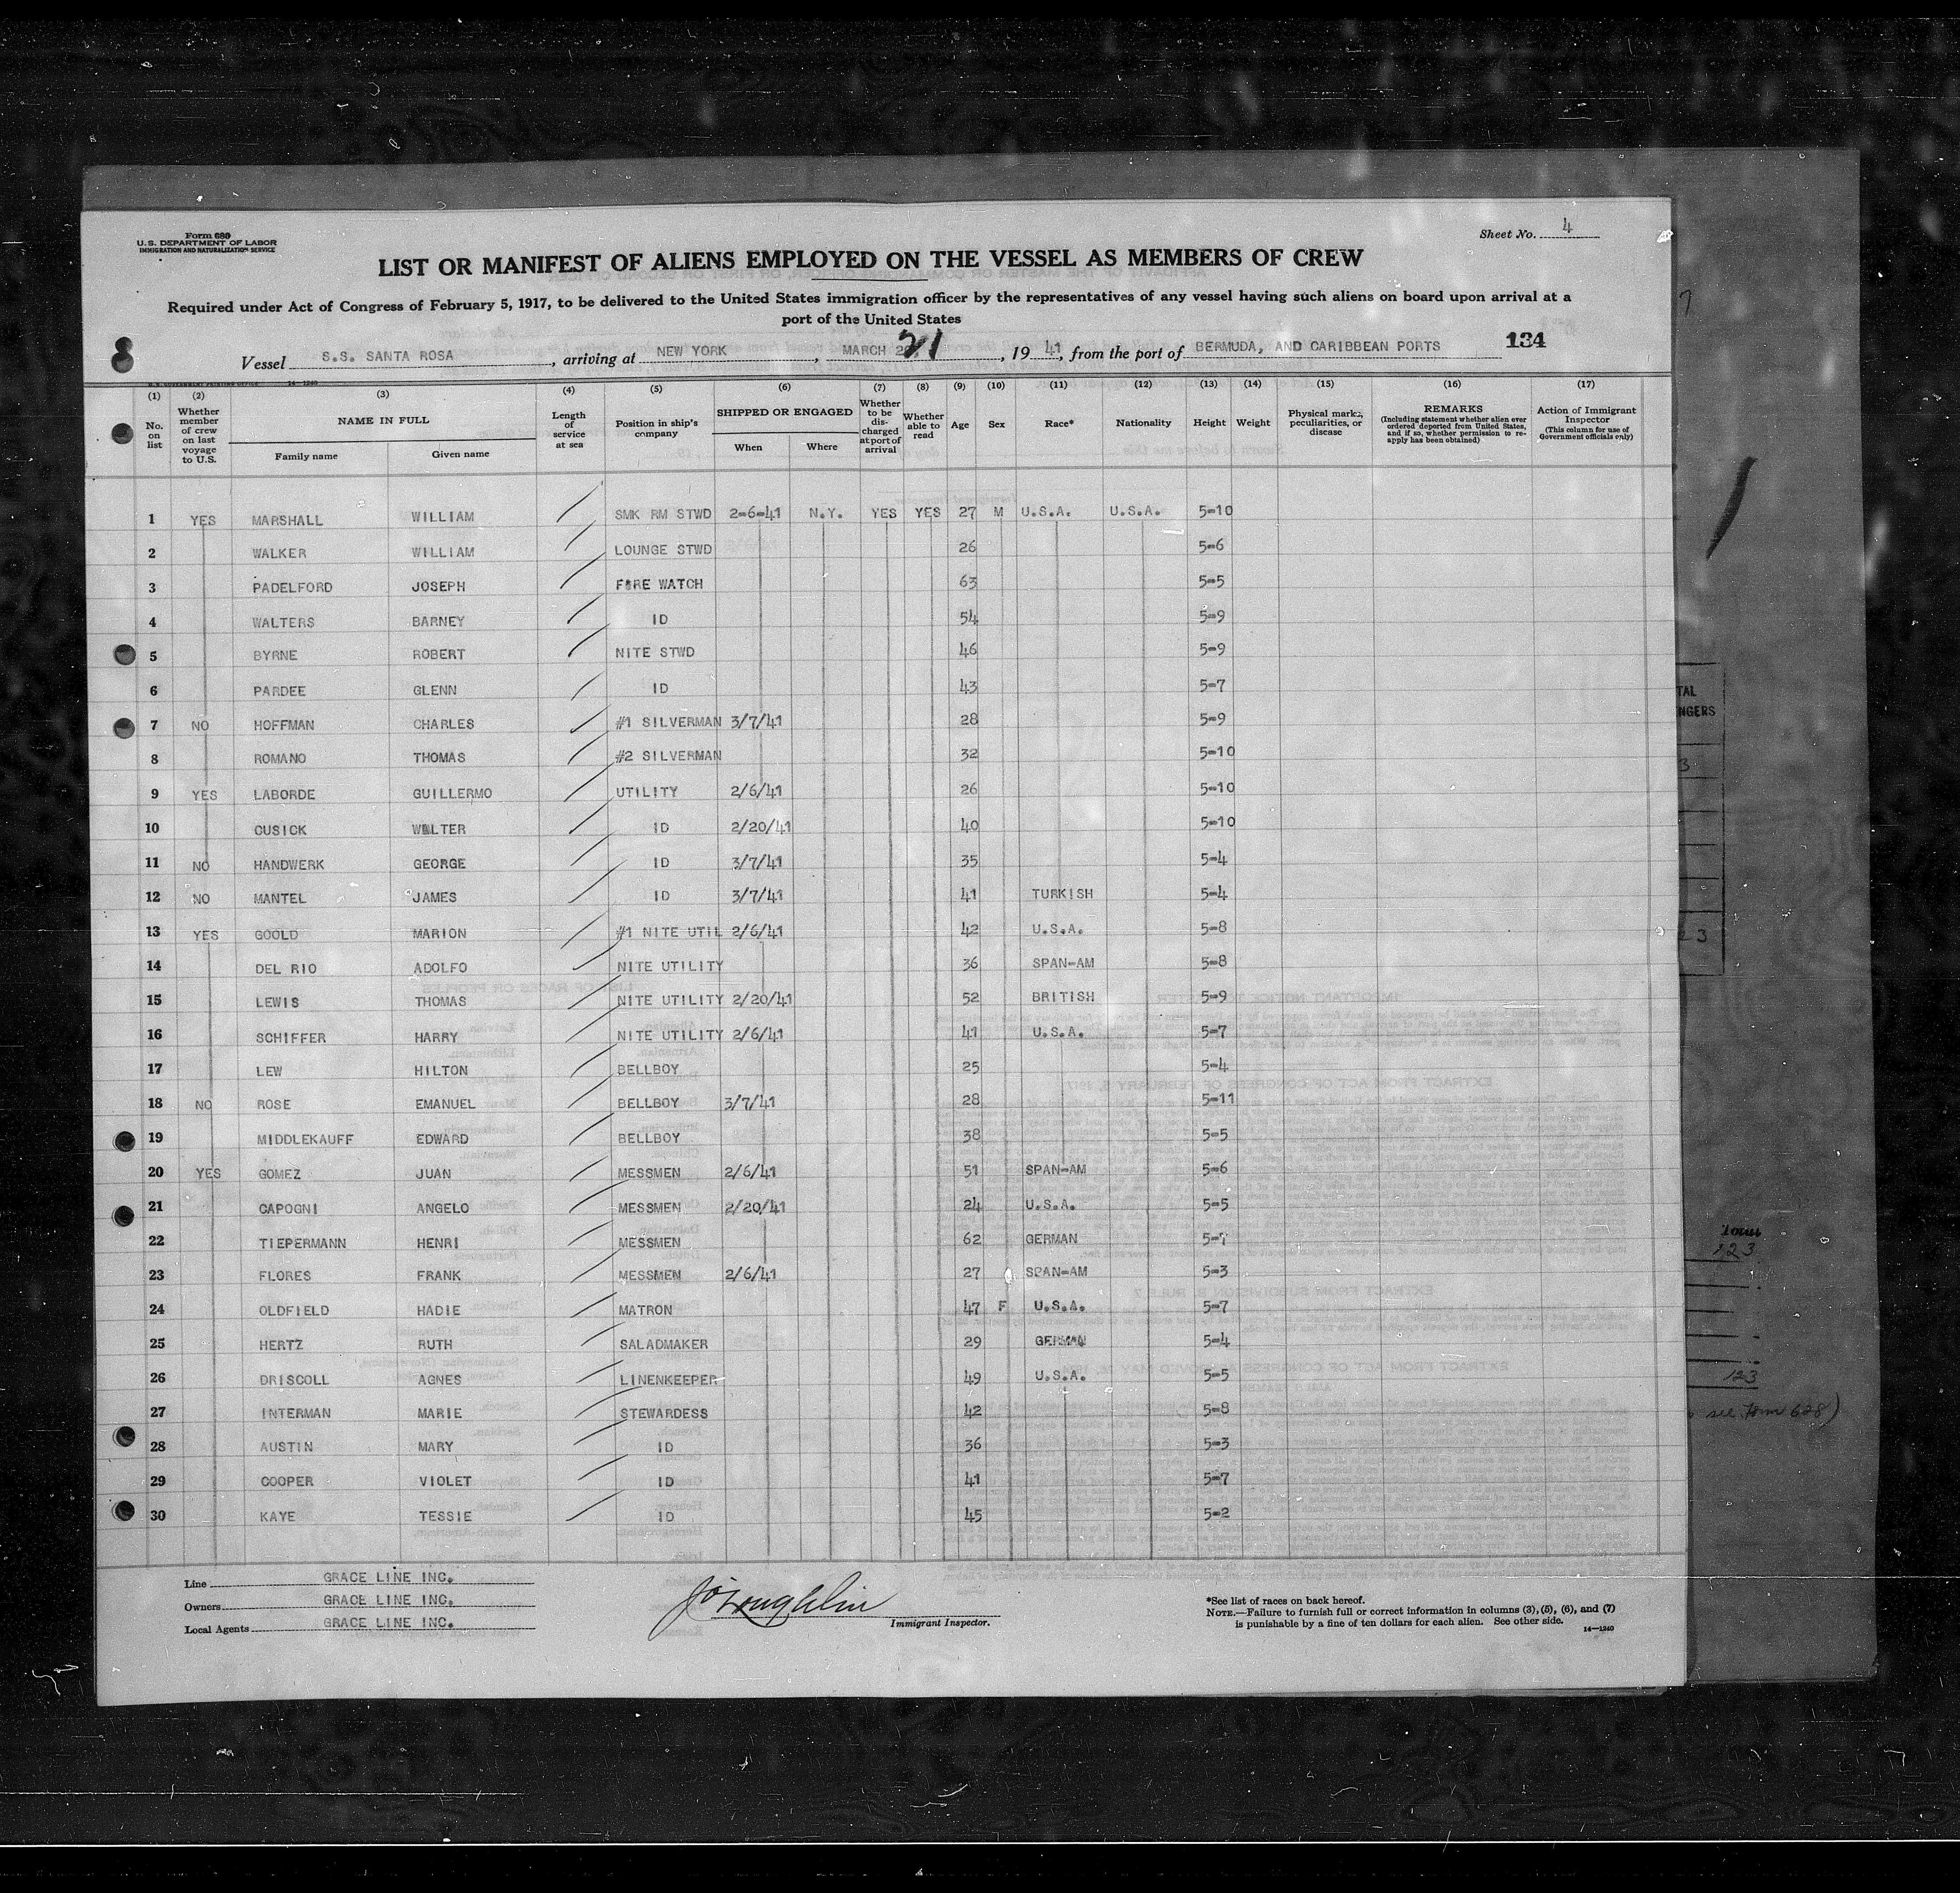 Form 680
U.S. DEPARTMENT OF LABOR
IMMIGRATION AND NATURALIZATION SERVICE
Sheet No. 4
LIST OR MANIFEST OF ALIENS EMPLOYED ON THE VESSEL AS MEMBERS OF CREW
Required under Act of Congress of February 5, 1917, to be delivered to the United States immigration officer by the representatives of any vessel having such aliens on board upon arrival at a
port of the United States
134
Vessel S.S. SANTA ROSA, arriving at NEW YORK, MARCH 21, 1941, from the port of BERMUDA, AND CARIBBEAN PORTS
(1) (2) (3) (4) (5) (6) (7) (8) (9) (10) (11) (12) (13) (14) (15) (16) (17)
No. on list
Whether member of crew on last voyage to U.S.
NAME IN FULL
Family name Given name
Length of service at sea
Position in ship's company
SHIPPED OR ENGAGED
When Where
Whether to be discharged at port of arrival
Whether able to read
Age
Sex
Race*
Nationality
Height
Weight
Physical marks, peculiarities, or disease
REMARKS
(Including statement whether alien ever ordered deported from United States, and if so, whether permission to reapply has been obtained)
Action of Immigrant Inspector
(This column for use of Government officials only)
1 YES MARSHALL WILLIAM SMK RM STWD 2-6-41 N.Y. YES YES 27 M U.S.A. U.S.A. 5-10
2 WALKER WILLIAM LOUNGE STWD 26 5-6
3 PADELFORD JOSEPH FIRE WATCH 63 5-5
4 WALTERS BARNEY ID 54 5-9
5 BYRNE ROBERT NITE STWD 46 5-9
6 PARDEE GLENN ID 43 5-7
7 NO HOFFMAN CHARLES #1 SILVERMAN 3/7/41 28 5-9
8 ROMANO THOMAS #2 SILVERMAN 32 5-10
9 YES LABORDE GUILLERMO UTILITY 2/6/41 26 5-10
10 CUSICK WALTER ID 2/20/41 40 5-10
11 NO HANDWERK GEORGE ID 3/7/41 35 5-4
12 NO MANTEL JAMES ID 3/7/41 41 TURKISH 5-4
13 YES GOOLD MARION #1 NITE UTIL 2/6/41 42 U.S.A. 5-8
14 DEL RIO ADOLFO NITE UTILITY 36 SPAN-AM 5-8
15 LEWIS THOMAS NITE UTILITY 2/20/41 52 BRITISH 5-9
16 SCHIFFER HARRY NITE UTILITY 2/6/41 41 U.S.A. 5-7
17 LEW HILTON BELLBOY 25 5-4
18 NO ROSE EMANUEL BELLBOY 3/7/41 28 5-11
19 MIDDLEKAUFF EDWARD BELLBOY 38 5-5
20 YES GOMEZ JUAN MESSMEN 2/6/41 51 SPAN-AM 5-6
21 CAPOGNI ANGELO MESSMEN 2/20/41 24 U.S.A. 5-5
22 TIEPERMANN HENRI MESSMEN 62 GERMAN 5-7
23 FLORES FRANK MESSMEN 2/6/41 27 SPAN-AM 5-3
24 OLDFIELD HADIE MATRON 47 F U.S.A. 5-7
25 HERTZ RUTH SALADMAKER 29 GERMAN 5-4
26 DRISCOLL AGNES LINENKEEPER 49 U.S.A. 5-5
27 INTERMAN MARIE STEWARDESS 42 5-8
28 AUSTIN MARY ID 36 5-3
29 COOPER VIOLET ID 41 5-7
30 KAYE TESSIE ID 45 5-2
Line GRACE LINE INC.
Owners GRACE LINE INC.
Local Agents GRACE LINE INC.
J O'Loughlin
Immigrant Inspector.
*See list of races on back hereof.
NOTE.—Failure to furnish full or correct information in columns (3), (5), (6), and (7)
is punishable by a fine of ten dollars for each alien. See other side.
14—1240
Total
123
123
see Form 628)